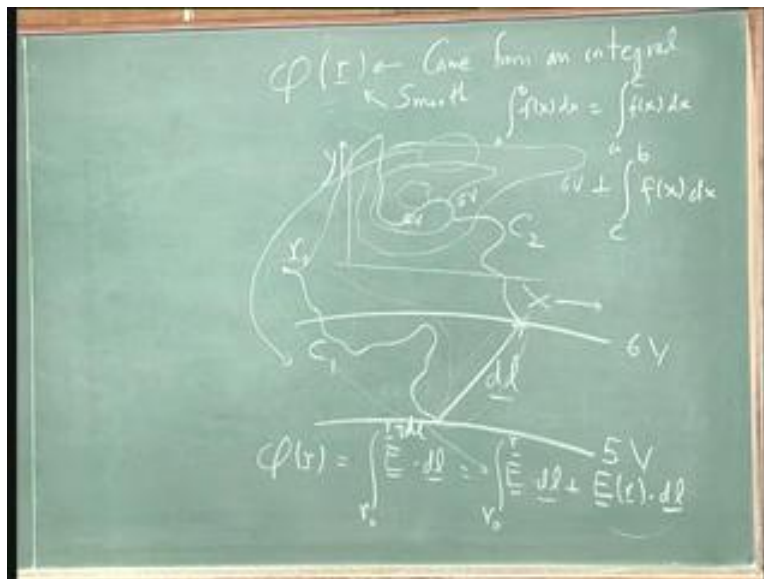 φ(r) ← Came from an integral
↖ Smooth
∫ f(x)dx = ∫_a^c f(x)dx
+ ∫_c^b f(x)dx
Y
6V
5V
6V
r₀
C₂
X →
C₁
6V
dl
5V
φ(r) = ∫_{r₀}^{r+dl} E · dl = ∫_{r₀}^{r} E dl + E(r) · dl